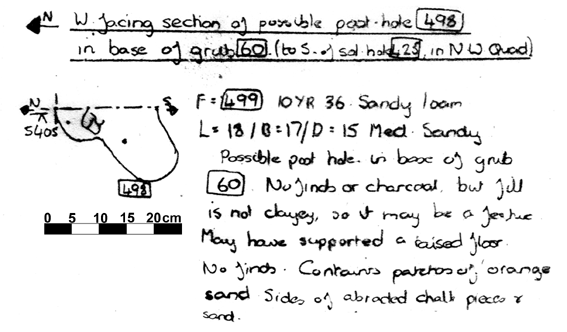 N W facing section of possible post-hole 498
in base of grub 60. (to S. of sol. hole 425, in NW Quad)
N S
540s
498
0 5 10 15 20cm
F = 499 10YR 36 Sandy loam
L = 18 / B = 17 / D = 15 Med. Sandy
Possible post hole. in base of grub
60 No finds or charcoal, but fill
is not clayey, so it may be a feature
May have supported a raised floor.
No finds. Contains patches of orange
sand Sides of abraded chalk pieces &
sand.